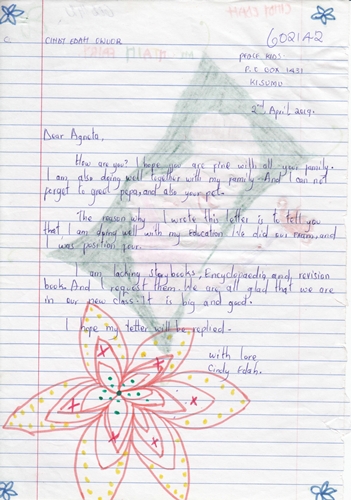 CINDY EDAH OWUOR
602142
P.O BOX 1431
KISUMU
2nd April 2019.
Dear Agnela,
How are you? I hope you are fine with all your family.
I am also doing well together with my family. And I can not
forget to greet pepa and also your pet.
The reason why I wrote this letter is to tell you
that I am doing well with my education We did our exam, and
I was position four.
I am lacking story books, Encyclopaedia and, revision
book. And I request them. We are all glad that we are
in our new class. It is big and good.
I hope my letter will be replied.
with love
Cindy Edah.